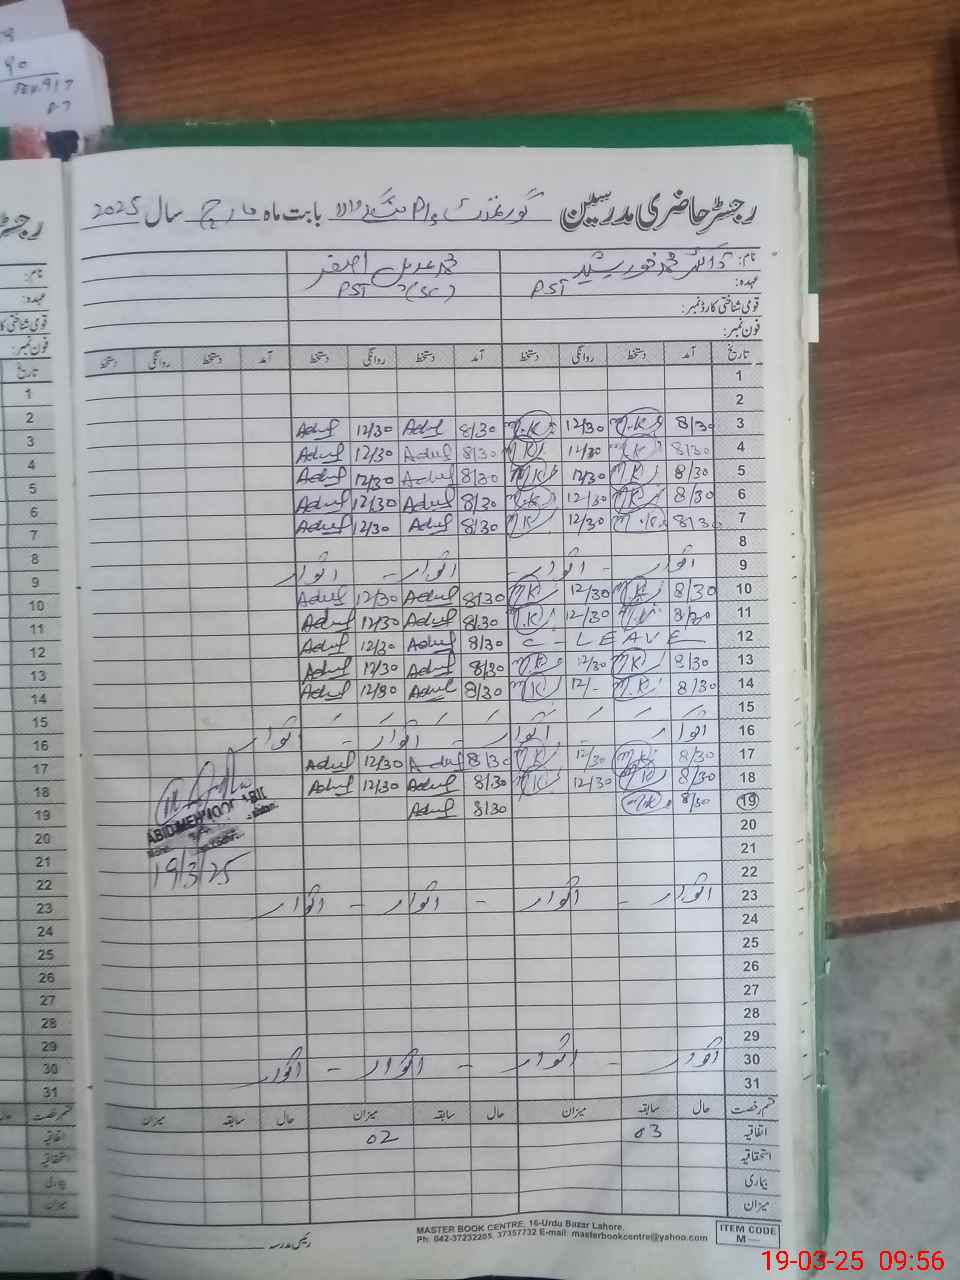 رجسٹر حاضری مدرسین گورنمنٹ بابت ماہ مارچ سال 2025
نام: ڈاکٹر محمد خورشید محمد عدیل اصغر
عہدہ: PST PST (SC)
قومی شناختی کارڈ نمبر:
فون نمبر:
تاریخ آمد دستخط روانگی دستخط آمد دستخط روانگی دستخط آمد دستخط روانگی دستخط
1
2
3 8/30 M.K 12/30 M.K 8/30 Aduf 12/30 Aduf
4 8/30 MK 12/30 MK 8/30 Aduf 12/30 Aduf
5 8/30 MK 12/30 MK 8/30 Aduf 12/30 Aduf
6 8/30 MK 12/30 M.K 8/30 Aduf 12/30 Aduf
7 8/30 M.K 12/30 MK 8/30 Aduf 12/30 Aduf
8
9 اتوار - اتوار - اتوار - اتوار
10 8/30 MK 12/30 MK 8/30 Aduf 12/30 Aduf
11 8/30 M.K 12/30 M.K 8/30 Aduf 12/30 Aduf
12 C - LEAVE 8/30 Aduf 12/30 Aduf
13 8/30 MK 12/30 M.K 8/30 Aduf 12/30 Aduf
14 8/30 M.K 12/- MK 8/30 Aduf 12/30 Aduf
15
16 اتوار - اتوار - اتوار - اتوار
17 8/30 MK 12/30 MK 8/30 Aduf 12/30 Aduf
18 8/30 MK 12/30 MK 8/30 Aduf 12/30 Aduf
19 8/30 M.K 8/30 Aduf
ABID MEHMOOD
19/3/25
20
21
22
23 اتوار - اتوار - اتوار - اتوار
24
25
26
27
28
29
30 اتوار - اتوار - اتوار - اتوار
31
قسم رخصت حال سابقہ میزان حال سابقہ میزان حال سابقہ میزان
اتفاقیہ 03 02
استحقاقیہ
بیماری
میزان
رئیس مدرسہ
MASTER BOOK CENTRE, 16-Urdu Bazar Lahore.
Ph: 042-37232205, 37357732 E-mail: masterbookcentre@yahoo.com
ITEM CODE
M—
19-03-25 09:56